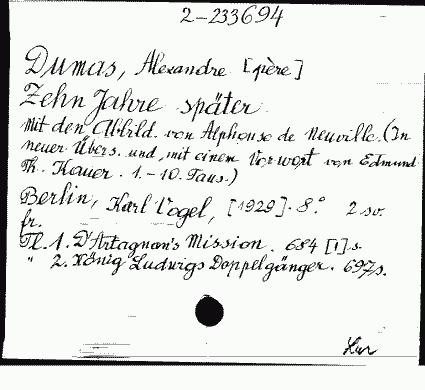 2-233694
Dumas, Alexandre [père]
Zehn Jahre später.
Mit den Abbild. von Alphonse de Neuville. (In
neuer Übers. und mit einem Vorwort von Edmund
Th. Kauer. 1.-10. Taus.)
Berlin, Karl Vogel, [1929]. 8° 2 sv.
fr.
Tl. 1. D'Artagnan's Mission. 684 [1] s.
" 2. König Ludwigs Doppelgänger. 697 s.